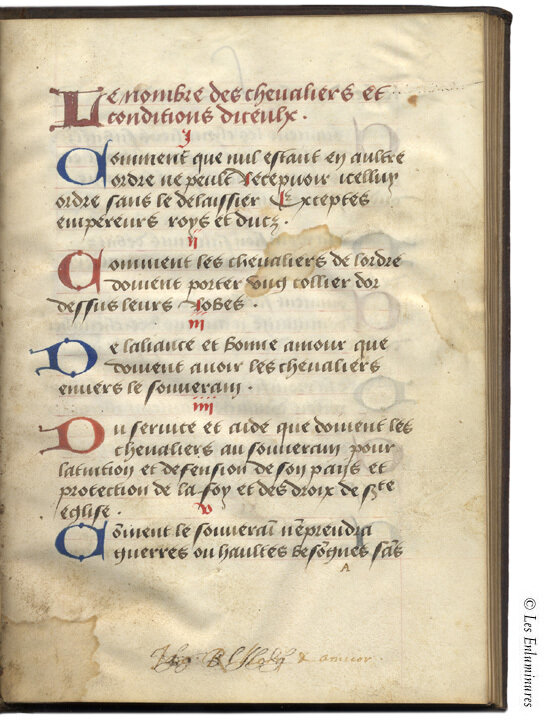 Le nombre des chevaliers et
conditions diceulx .
j
Comment que nul estant en aultre
ordre ne peult recepvoir icelluy
ordre sans le delaissier Exceptes
empereurs roys et ducz .
ij
Comment les chevaliers de lordre
doivent porter ung collier dor
dessus leurs robes .
iij
De laliance et bonne amour que
doivent avoir les chevaliers
envers le souverain .
iiij
Du service et aide que doivent les
chevaliers au souverain pour
latuition et defension de son pays et
protection de la foy et des droix de sᵗe
eglise .
v
Cōment le souverai͂ n'ēprendra
guerres ou haultes besōgnes sās
A
amicor
© Les Enluminures